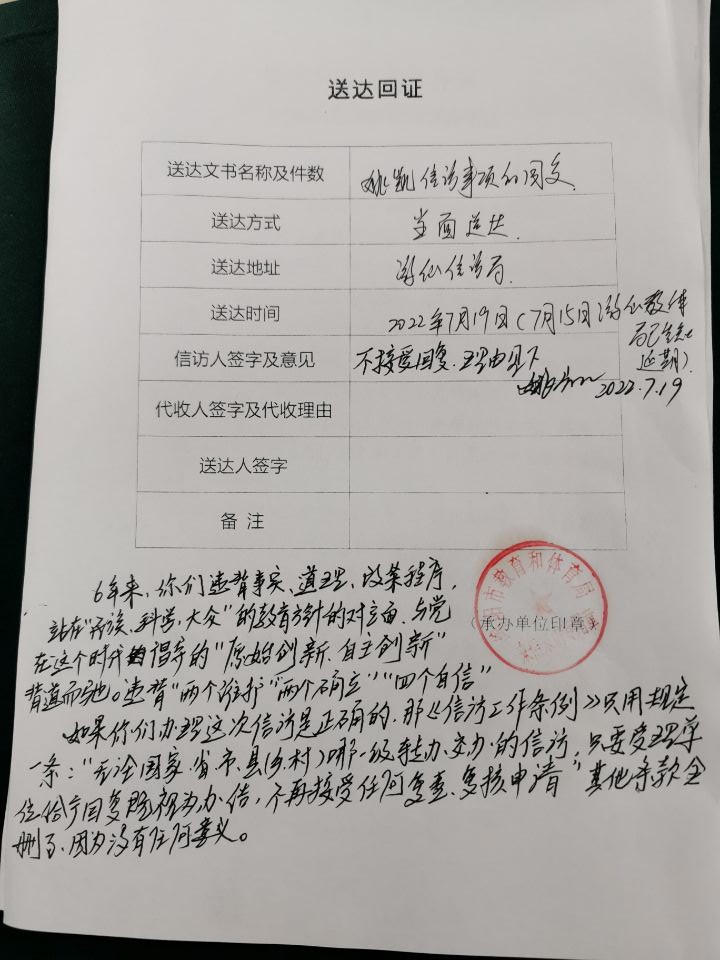 送达回证
送达文书名称及件数 姚凯信访事项的回复
送达方式 当面送达.
送达地址 游仙信访局.
送达时间 2022年7月19日(7月15日游仙教体
局已
延期).
信访人签字及意见 不接受回复.理由见下
2022.7.19
代收人签字及代收理由
送达人签字
备 注
市教育和体育局
(承办单位印章)
6年来,你们违背事实、道理、政策程序,
站在"民族、科学、大众"的教育方针的对立面.与党
在这个时代倡导的"原始创新.自主创新"
背道而驰。违背"两个维护""两个确立""四个自信"
如果你们办理这次信访是正确的,那《信访工作条例》只用规定
一条:"无论国家.省.市.县(乡.村)哪一级转办.交办的信访,只要受理单
位给个回复既视为办信,不再接受任何复查.复核申请"其他条款全
删了、因为没有任何意义。